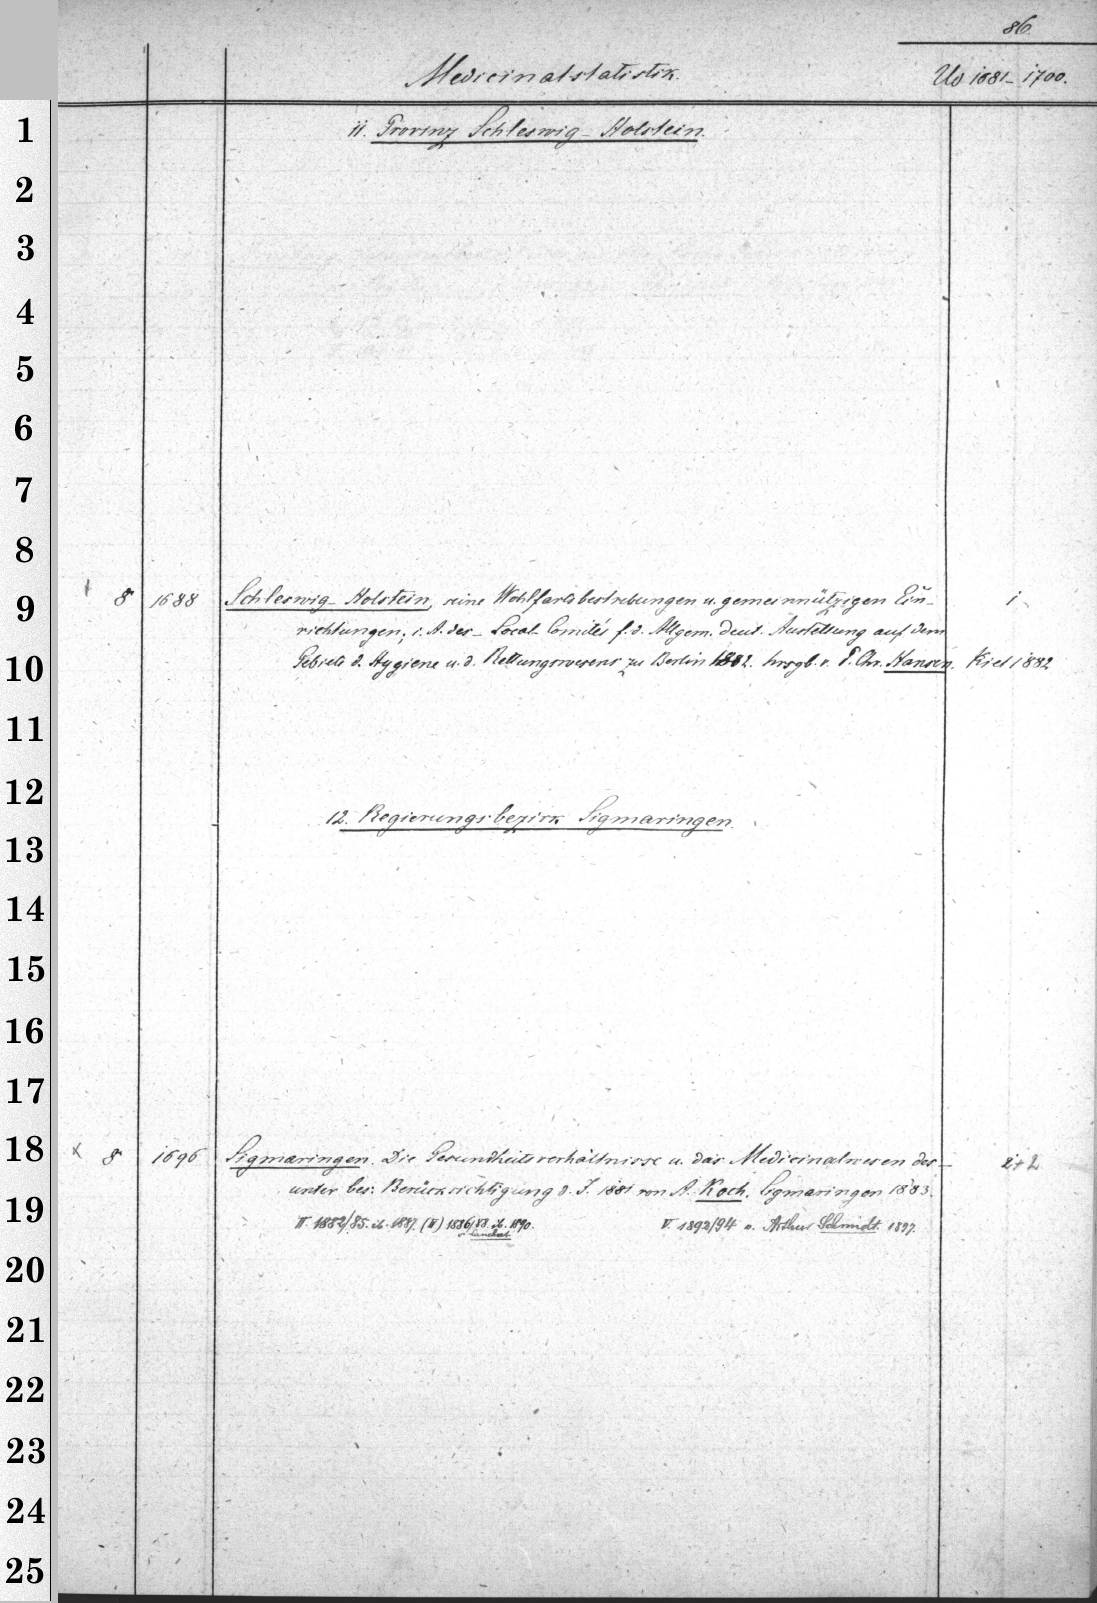 86
Medicinalstatistik.
Ud 1681–1700.
11. Provinz Schleswig-Holstein.
† 8 1688 Schleswig-Holstein, seine Wohlfartsbestrebungen u. gemeinnützigen Ein- 1
richtungen; i. A. des Local-Comités f. d. Allgem. Deut. Ausstellung auf dem
Gebiete d. Hygiene u. d. Rettungswesens zu Berlin 1882. hrsgb. v. P. Chr. Hansen. Kiel 1882
12. Regierungsbezirk Sigmaringen.
x 8 1696 Sigmaringen. Die Gesundheitsverhältnisse u. das Medicinalwesen des– 2
unter bes. Berücksichtigung d. J. 1881 von A. Koch. Sigmaringen 1883.
II 1882/85. ib. 1887. (III) 1886/88. ib. 1890. V. 1892/94 v. Arthur Schmidt. 1897.
1
2
3
4
5
6
7
8
9
10
11
12
13
14
15
16
17
18
19
20
21
22
23
24
25